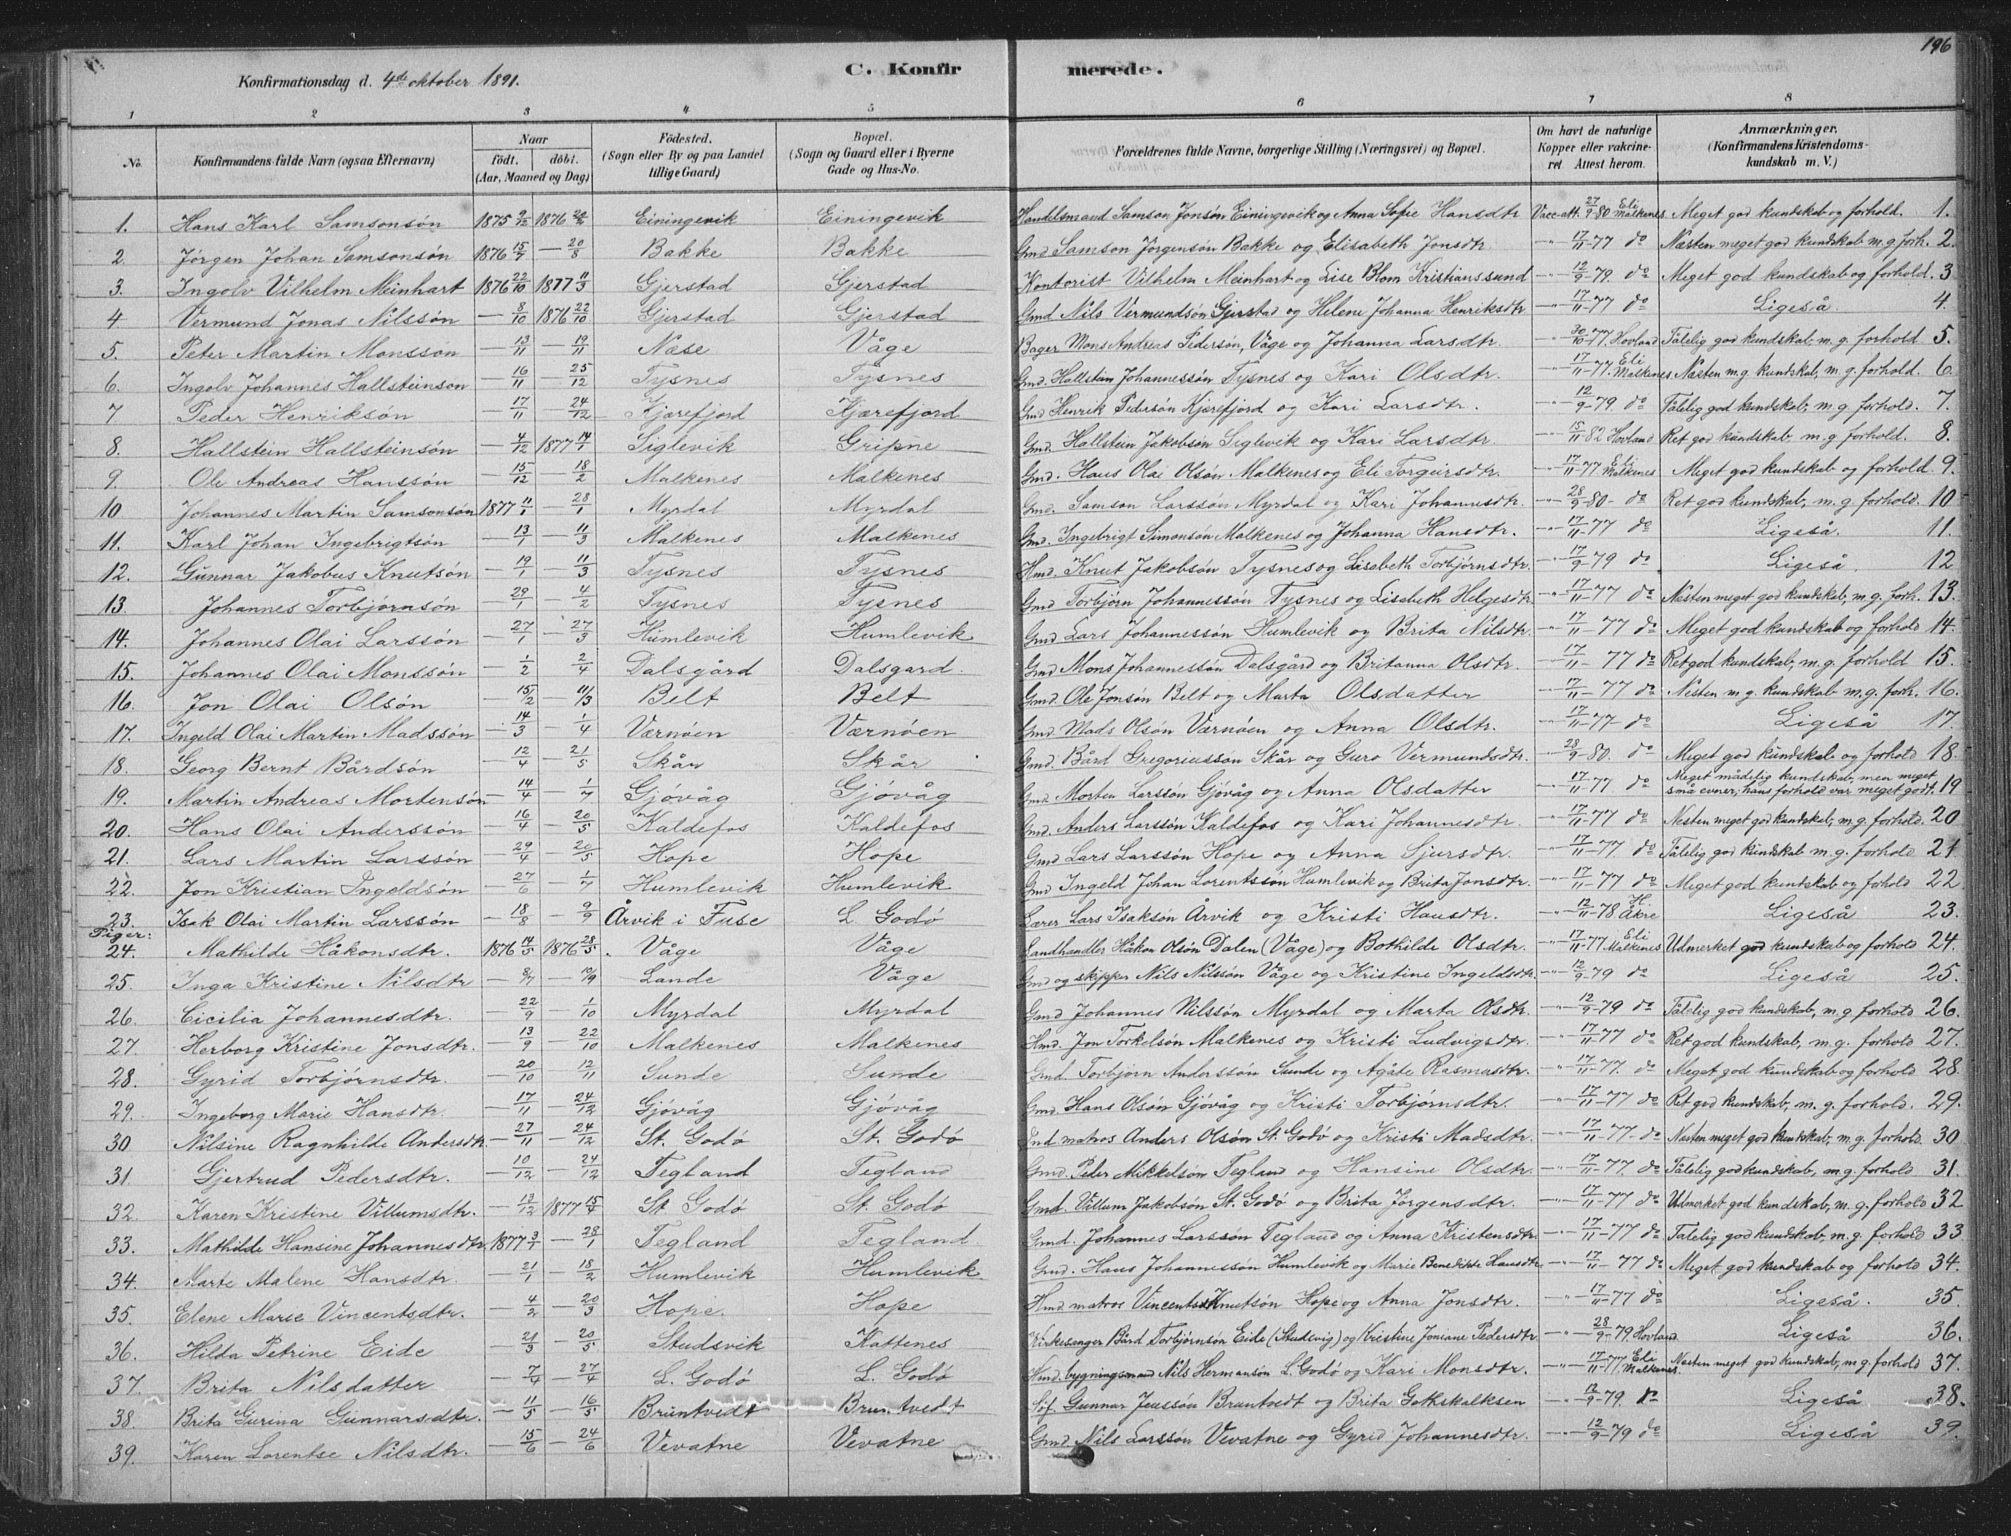 196
Konfirmationsdag d. 4de oktober 1891.
C. Konfirmerede.
1 2 3 4 5 6 7 8
No.
Konfirmandens fulde Navn (ogsaa Efternavn)
Naar
födt. döbt.
(Aar, Maaned og Dag)
Födested.
(Sogn eller By og paa Landet
tillige Gaard)
Bopæl.
(Sogn og Gaard eller i Byerne
Gade og Hus-No.
Forældrenes fulde Navne, borgerlige Stilling (Næringsvei) og Bopæl.
Om havt de naturlige
Kopper eller vakcine-
ret. Attest herom.
Anmærkninger.
(Konfirmandens Kristendoms-
kundskab m. V.)
1. Hans Karl Samsonsön 1875 1876 Einingevik Einingevik Handelsmand Samson Jonsön Einingevik og Anna Sofie Hansdtr Vacc. att. 27/9-80 Eli Malkenes Meget god kundskab og forhold. 1.
2. Jörgen Johan Samsonsön 1876 15/7 — 20/8 Bakke Bakke Gmd Samson Jörgensön Bakke og Elisabeth Jonsdtr 17/11-77 do Næsten meget god kundskab m.g. forh. 2.
3. Ingolv Vilhelm Meinhart 1876 22/10 1877 11/3 Gjerstad Gjerstad Kontorist Vilhelm Meinhart og Lise Blom Kristianssund 12/9-79. do Meget god kundskab og forhold. 3
4 Vermund Jonas Nilssön — 8/10 1876 22/10 Gjerstad Gjerstad Gmd Nils Vermundsön Gjerstad og Helene Johanna Henriksdtr 17/11-77 do Ligeså 4
5. Peter Martin Monssön — 13/11 — 19/11 Næse Våge Bager Mons Andreas Pedersön, Våge og Johanna Larsdtr. 30/10-77 Hovland Tålelig god kundskab m.g. forhold 5.
6. Ingolv Johannes Hallsteinson — 16/11 — 25/12 Tysnes Tysnes Gmd. Hallstein Johannessön Tysnes og Kari Olsdtr. 17/11-77. Eli Malkenes Næsten m.g. kundskab, m.g. forhold. 6.
7 Peder Henriksön — 17/11 — 24/12 Kjærefjord Kjærefjord Gmd Henrik Pedersön Kjærefjord og Kari Larsdtr. 12/9-79. do Tålelig god kundskab, m.g. forhold. 7.
8. Hallstein Hallsteinsön — 4/12 1877 14/1 Siglevik Gripne Gmd. Hallstein Jakobsön Siglevik og Kari Larsdtr. 15/11 82 Hovland Ret god kundskab m.g. forhold. 8.
9. Ole Andreas Hanssön — 15/12 — 18/2 Malkenes Malkenes Gmd. Hans Olai Olsön Malkenes og Eli Torgeirsdtr. 17/11-77 Eli Malkenes Meget god kundskab og forhold 9.
10 Johannes Martin Samsonsön 1877 11/1 — 28/1 Myrdal Myrdal Gmd. Samson Larssön Myrdal og Kari Johannesdtr 28/9-80- do Ret god kundskab, m.g. forhold. 10
11. Karl Johan Ingebrigtsön — 13/1 — 11/3 Malkenes Malkenes Gmd. Ingebrigt Simonsön Malkenes og Johanna Hansdtr. 17/11-77 do Ligeså. 11.
12. Gunnar Jakobus Knutsön — 19/1 — 11/3 Tysnes Tysnes Hmd. Knut Jakobsön Tysnes og Lisebeth Torbjörnsdtr. 17/9-79 do Ligeså. 12
13. Johannes Torbjörnsön — 29/1 — 4/2 Tysnes Tysnes Gmd Torbjörn Johannessön Tysnes og Lisebeth Helgesdtr 17/11-77 do Næsten meget god kundskab, m.g. forh. 13.
14. Johannes Olai Larssön — 27/1 — 27/3 Humlevik Humlevik Gmd Lars Johannessön Humlevik og Brita Nilsdtr 17/11-77 do Meget god kundskab og forhold 14.
15. Johannes Olai Monssön — 1/2 — 2/4 Dalsgård Dalsgard. Gmd Mons Johannessön Dalsgård og Britanna Olsdtr. 17/11-77 do Ret god kundskab, m.g. forhold 15.
16. Jon Olai Olsön — 15/2 — 11/3 Belt Belt Gmd. Ole Jonsön Belt og Marta Olsdatter 17/11-77 do Næsten m.g. kundskab m.g. forh. 16.
17. Ingeld Olai Martin Madssön — 14/3 — 1/4 Værnöen Værnöen Gmd Mads Olsön Værnöen og Anna Olsdtr. 17/11-77- do Ligeså 17.
18. Georg Bernt Bårdsön — 12/4 — 21/5 Skår Skår Gmd. Bård Gregoriussön Skår og Guro Vermundsdtr. 28/9-80. do Meget god kundskab og forhold 18.
19. Martin Andreas Mortensön — 14/4 — 1/7 Gjövåg Gjövåg Gmd Morten Larssön Gjövåg og Anna Olsdatter 17/11-77. do Meget mådelig kundskab, men meget små evner; hans forhold var meget godt. 19
20. Hans Olai Anderssön — 16/4 — 20/5 Kaldefos Kaldefos Gmd. Anders Larssön Kaldefos og Kari Johannesdtr. 17/11-77 do Næsten meget god kundskab, m.g. forhold. 20
21. Lars Martin Larssön — 29/4 — 20/5 Hope Hope Gmd Lars Larssön Hope og Anna Sjursdtr. 17/11-77. do Tålelig god kundskab m.g. forhold 21
22. Jon Kristian Ingeldsön — 27/6 — 1/7 Humlevik Humlevik Gmd Ingeld Johan Lorentssön Humlevik og Brita Jonsdtr. 17/11-77 do Meget god kundskab og forhold 22.
23. Isak Olai Martin Larssön — 18/8 — 9/9 Årvik i Fuse L. Godö Lærer Lars Isaksön Årvik og Kristi Hansdtr. 12/11-78 H. Åkre Ligeså 23.
Piger:
24. Mathilde Håkonsdtr. 1876 14/5 1876 28/5 Våge Våge Landhandler Håkon Olsön Dalen (Våge) og Bothilde Olsdtr. 17/11-77 Eli Malkenes Udmerket god kundskab og forhold 24.
25. Inga Kristine Nilsdtr — 8/7 — Lande Våge Gmd og skipper Nils Nilssön Våge og Kristine Ingeldsdtr. 12/9-79 do Ligeså 25.
26. Cicilia Johannesdtr. — 22/9 — 1/10 Myrdal Myrdal Gmd Johannes Nilssön Myrdal og Marta Olsdtr 12/9-79 do Tålelig god kundskab, m.g forhold 26.
27. Herborg Kristine Jonsdtr. — 13/9 — 22/10 Malkenes Malkenes Hmd. Jon Torkelsön Malkenes og Kristi Ludvigsdtr 17/11-77 do Ret god kundskab, m.g. forhold 27.
28. Gyrid Torbjörnsdtr. — 20/10 — 12/11 Sunde Sunde Gmd. Torbjörn Anderssön Sunde og Agate Rasmusdtr. 17/11-77. do Meget god kundskab og forhold 28.
29. Ingeborg Marie Hansdtr. — 17/11 — 24/12 Gjövåg Gjövåg Gmd. Hans Olsön Gjövåg og Kristi Torbjörnsdtr. 17/11-77 do Ret god kundskab, m.g. forhold. 29.
30 Nilsine Ragnhilde Andersdtr. — 27/11 — 24/12 St. Godö St. Godö Ind. matros Anders Olsön St. Godö og Kristi Madsdtr. 17/11-77- do Næsten meget god kundskab, m.g. forhold 30
31. Gjertrud Pedersdtr. — 10/12 — 24/12 Tegland Tegland Gmd. Peder Mikkelsön Tegland og Hansine Olsdtr. 17/11-77. do Tålelig god kundskab, m.g. forhold 31.
32. Karen Kristine Villumsdtr. — 13/12 1877 15/4 St. Godö St. Godö Gmd. Villum Jakobsön St. Godö og Brita Jörgensdtr. 17/11-77 do Udmerket god kundskab, m.g. forhold 32
33. Mathilde Hansine Johannesdtr 1877 3/1 — 28/1 Tegland Tegland Gmd. Johannes Larssön Tegland og Anna Kristensdtr. 17/11-77 do Tålelig god kundskab m.g. forhold 33.
34. Marte Malene Hansdtr. — 21/1 — 18/2 Humlevik Humlevik Gmd. Hans Johannessön Humlevik og Marie Benedikte Hansdtr 17/11 77 do Meget god kundskab og forhold 34.
35. Elene Marie Vincentsdtr. — 4/2 — 20/3 Hope Hope Hmd matros Vincents Knutsön Hope og Anna Jonsdtr. 17/11-77 do Ligeså. 35.
36. Hilda Petrine Eide — 21/3 — 20/5 Studsvik Kattenes Kirkesanger Bård Torbjörnsön Eide (Studsvig) og Kristine Joniane Pedersdtr 28/9-79. Hovland Ligeså 36.
37. Brita Nilsdatter — 7/4 — 27/4 L. Godö L. Godö Hmd. bygningsmand Nils Hermansön L. Godö og Kari Monsdtr 17/11-77. Eli Malkenes Næsten meget god kundskab, m.g. forhold 37.
38. Brita Gurina Gunnarsdtr. — 11/5 — 16/5 Bruntvedt Bruntvedt Söf. Gunnar Jenssön Bruntvedt og Brita Gotskalksen 12/9-79. do Ligeså 38.
39. Karen Lorentse Nilsdtr. — 15/6 — 24/6 Vevatne Vevatne Gmd. Nils Larssön Vevatne og Gyrid Johannesdtr. 12/9-79 do Ligeså 39.